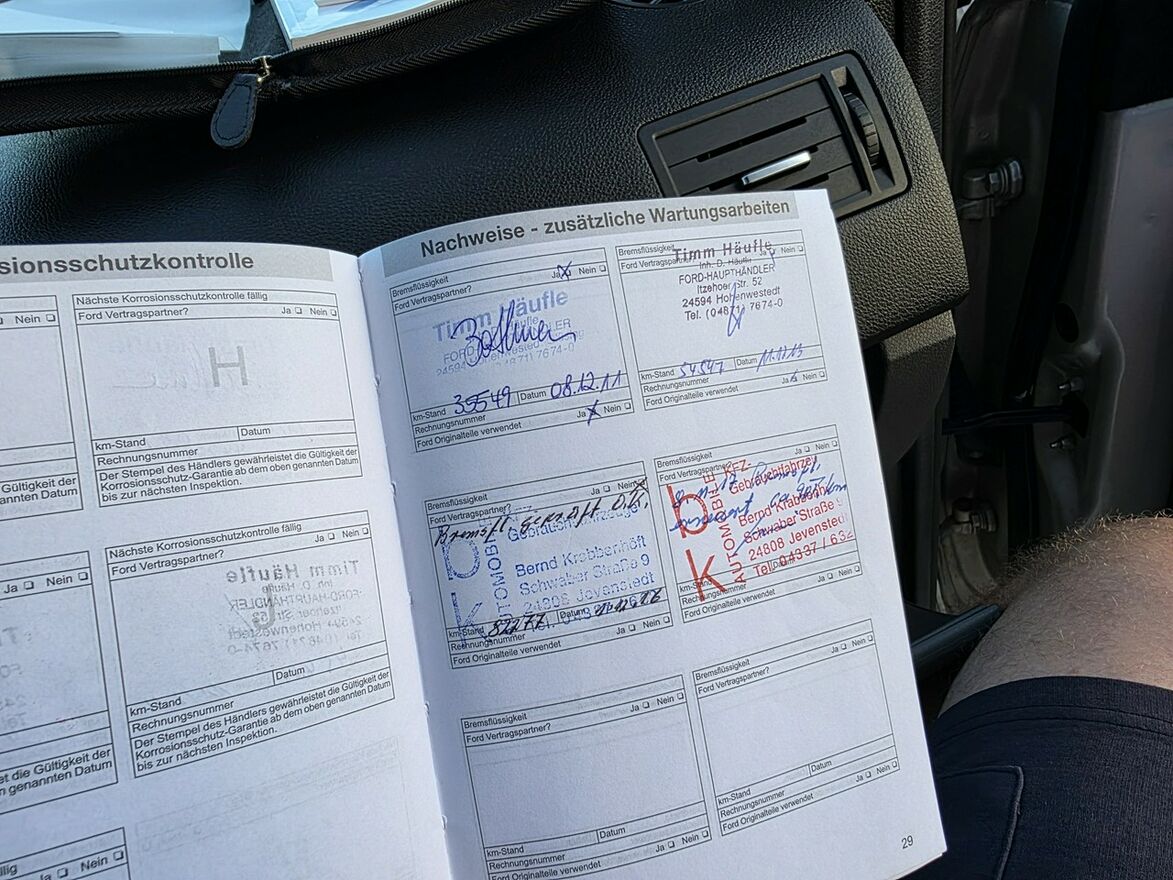 sionsschutzkontrolle
Nein
Nächste Korrosionsschutzkontrolle fällig
Ford Vertragspartner? Ja Nein
km-Stand Datum
Rechnungsnummer
Der Stempel des Händlers gewährleistet die Gültigkeit der
Korrosionsschutz-Garantie ab dem oben genannten Datum
bis zur nächsten Inspektion.
Gültigkeit der
nannten Datum
Nächste Korrosionsschutzkontrolle fällig
Ford Vertragspartner? Ja Nein
Ja Nein
km-Stand Datum
Rechnungsnummer
Der Stempel des Händlers gewährleistet die Gültigkeit der
Korrosionsschutz-Garantie ab dem oben genannten Datum
bis zur nächsten Inspektion.
et die Gültigkeit der
genannten Datum
Ja Nein
Nachweise - zusätzliche Wartungsarbeiten
Bremsflüssigkeit
Ford Vertragspartner? Ja Nein
Timm Häufle
24594 Hohenwestedt
km-Stand 35549 Datum 08.12.11
Rechnungsnummer
Ford Originalteile verwendet Ja Nein
Bremsflüssigkeit
Ford Vertragspartner Ja Nein
Timm Häufle
Inh. D. Häufle
FORD-HAUPTHÄNDLER
Itzehoer Str. 52
24594 Hohenwestedt
Tel. (04871) 7674-0
km-Stand 54547 Datum 11.12.13
Rechnungsnummer
Ford Originalteile verwendet Ja Nein
Bremsflüssigkeit
Ford Vertragspartner? Ja Nein
b k
AUTOMOBILE
Gebrauchtfahrzeuge
Bernd Krabbenhöft
Schwaber Straße 9
24808 Jevenstedt
km-Stand 82277 Datum
Rechnungsnummer
Ford Originalteile verwendet Ja Nein
Bremsflüssigkeit
Ford Vertragspartner Ja Nein
b k
AUTOMOBILE
KFZ-
Gebrauchtfahrzeuge
Bernd Krabbenhöft
Schwaber Straße 9
24808 Jevenstedt
Tel. 04337 / 632
Rechnungsnummer
Ford Originalteile verwendet Ja Nein
Bremsflüssigkeit
Ford Vertragspartner? Ja Nein
km-Stand Datum
Rechnungsnummer
Ford Originalteile verwendet Ja Nein
Bremsflüssigkeit
Ford Vertragspartner? Ja Nein
km-Stand Datum
Rechnungsnummer
Ford Originalteile verwendet Ja Nein
29